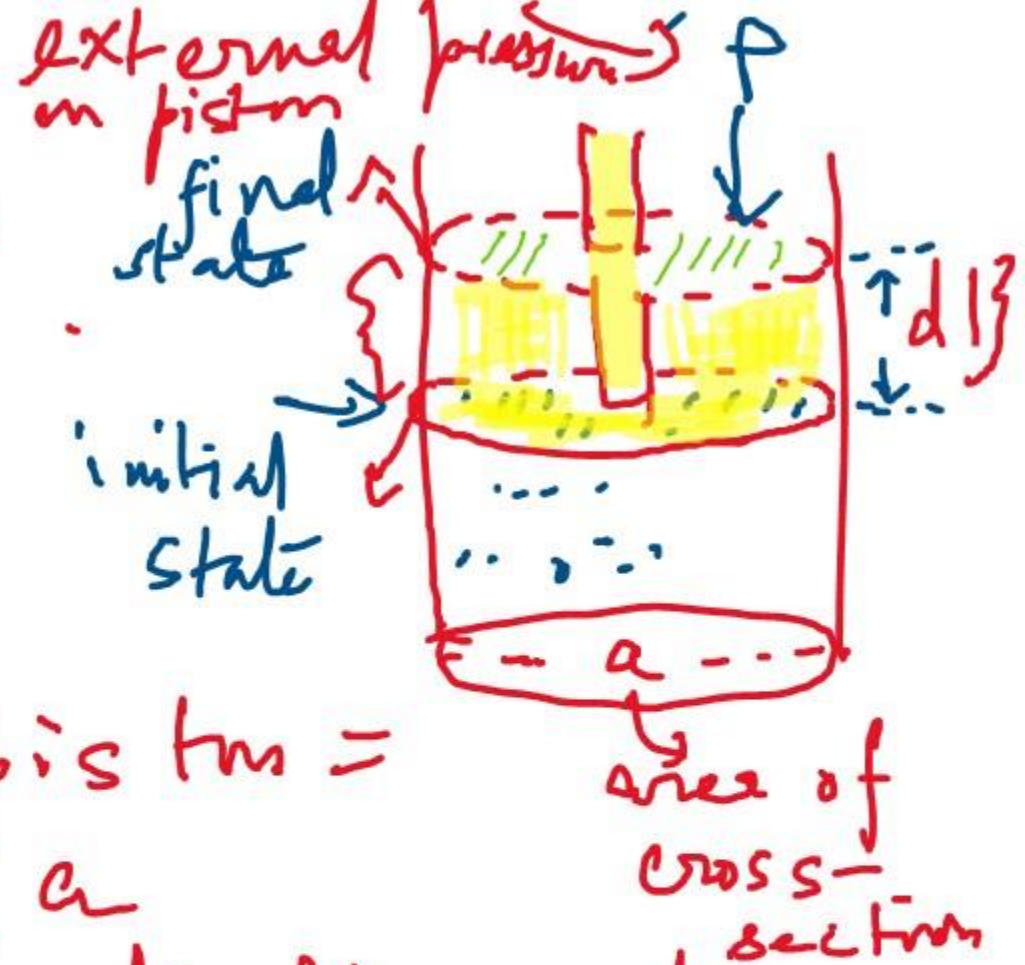 external pressure P
on piston
final
state
dl}
initial
state
a
is ton =
area of
cross-
section
a